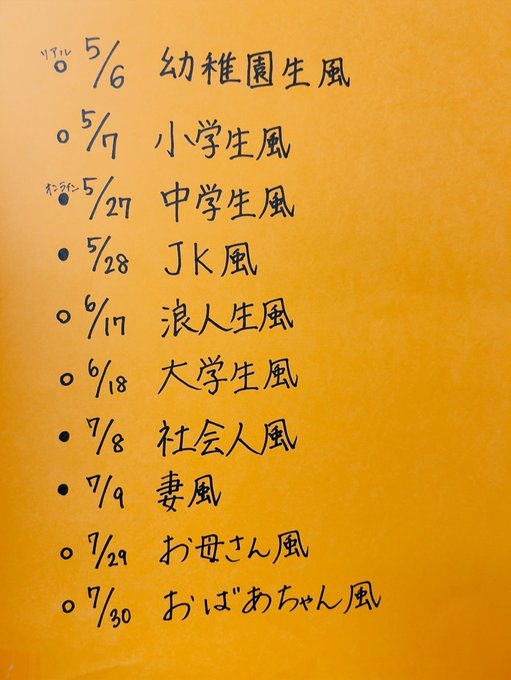 リアル
○ 5/6 幼稚園生風
○ 5/7 小学生風
オンライン
● 5/27 中学生風
● 5/28 JK風
○ 6/17 浪人生風
○ 6/18 大学生風
● 7/8 社会人風
● 7/9 妻風
○ 7/29 お母さん風
○ 7/30 おばあちゃん風